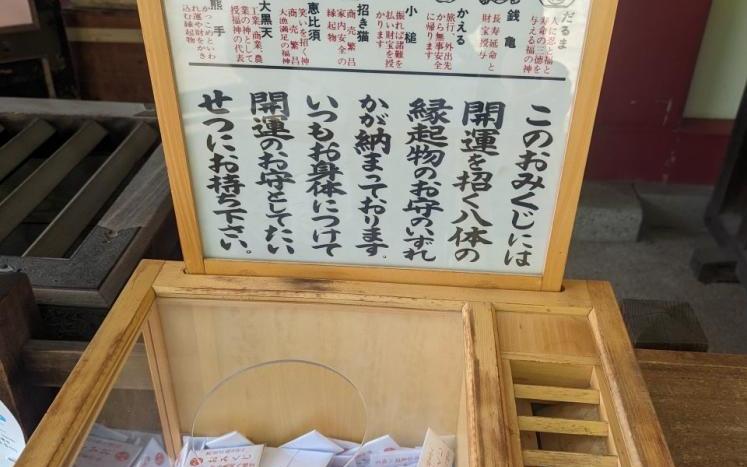 だるま
人に忍と福と
寿命の三徳を
与える福の神
銭亀
長寿延命と
財宝授与
かえる
旅行・外出先
から無事安全
に帰ります
小槌
振れば諸難を
払い財宝を授
かります
招き猫
商売繁昌
家内安全の
縁起物
恵比須
笑いを招く神
商売繁昌
大漁満足の福神
大黒天
工業、商業、農
業の神として
授福神の代表
熊手
かっこめといわ
れ運や財をかき
込む縁起物
このおみくじには
開運を招く八体の
縁起物のお守のいずれ
かが納まっております。
いつもお身体につけて
開運のお守としてたい
せつにお持ち下さい。